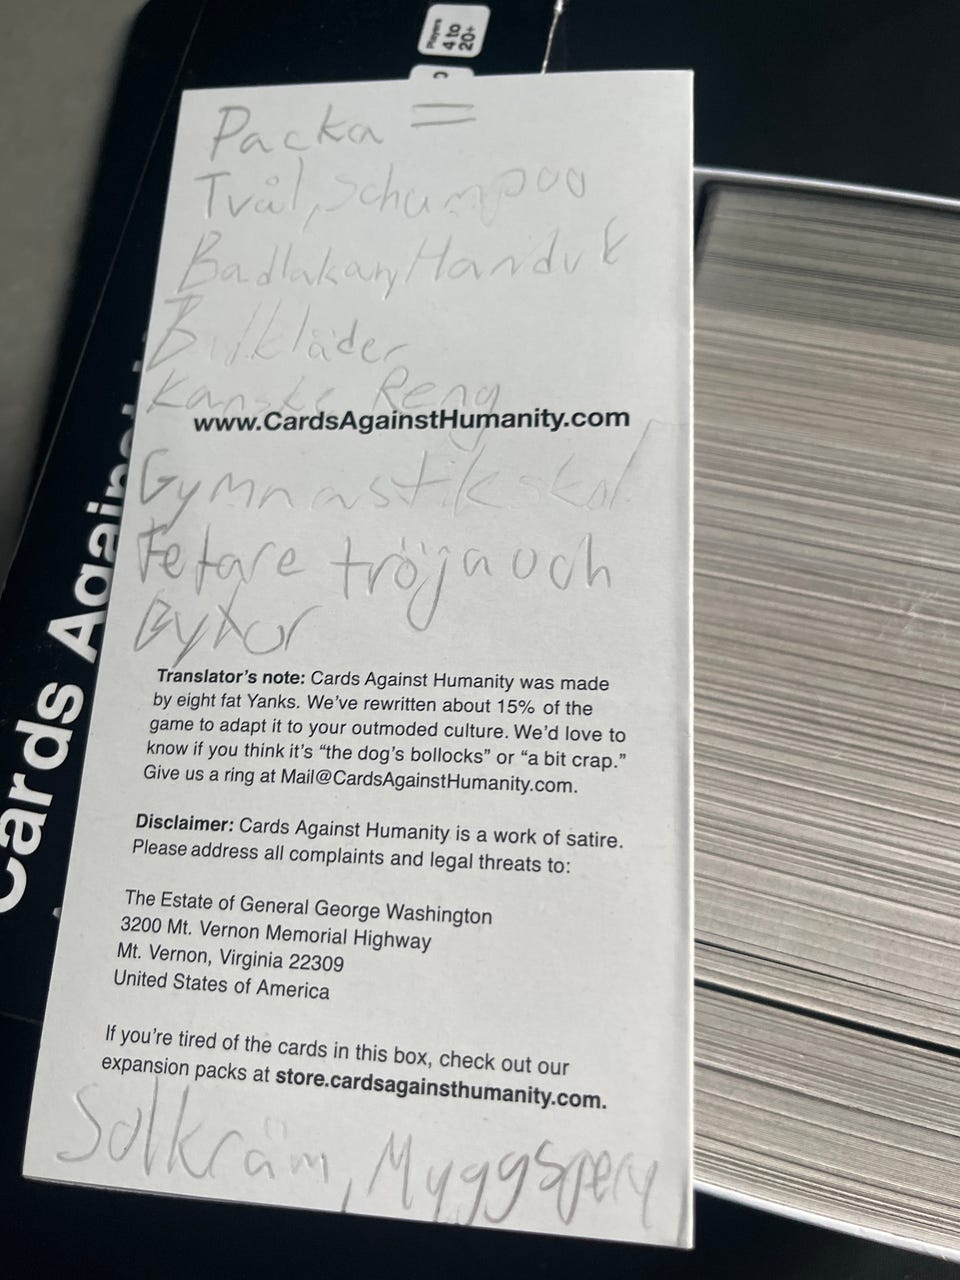 Players
4 to
20+
Cards Against
Packa =
Tvål, Schumpoo
Badlakan, Handuk
kläder
Kanske Reng
www.CardsAgainstHumanity.com
Gymnastikskol
Fetare tröja och
Byxor
Translator's note: Cards Against Humanity was made
by eight fat Yanks. We've rewritten about 15% of the
game to adapt it to your outmoded culture. We'd love to
know if you think it's "the dog's bollocks" or "a bit crap."
Give us a ring at Mail@CardsAgainstHumanity.com.
Disclaimer: Cards Against Humanity is a work of satire.
Please address all complaints and legal threats to:
The Estate of General George Washington
3200 Mt. Vernon Memorial Highway
Mt. Vernon, Virginia 22309
United States of America
If you're tired of the cards in this box, check out our
expansion packs at store.cardsagainsthumanity.com.
Solkräm, Myggspery